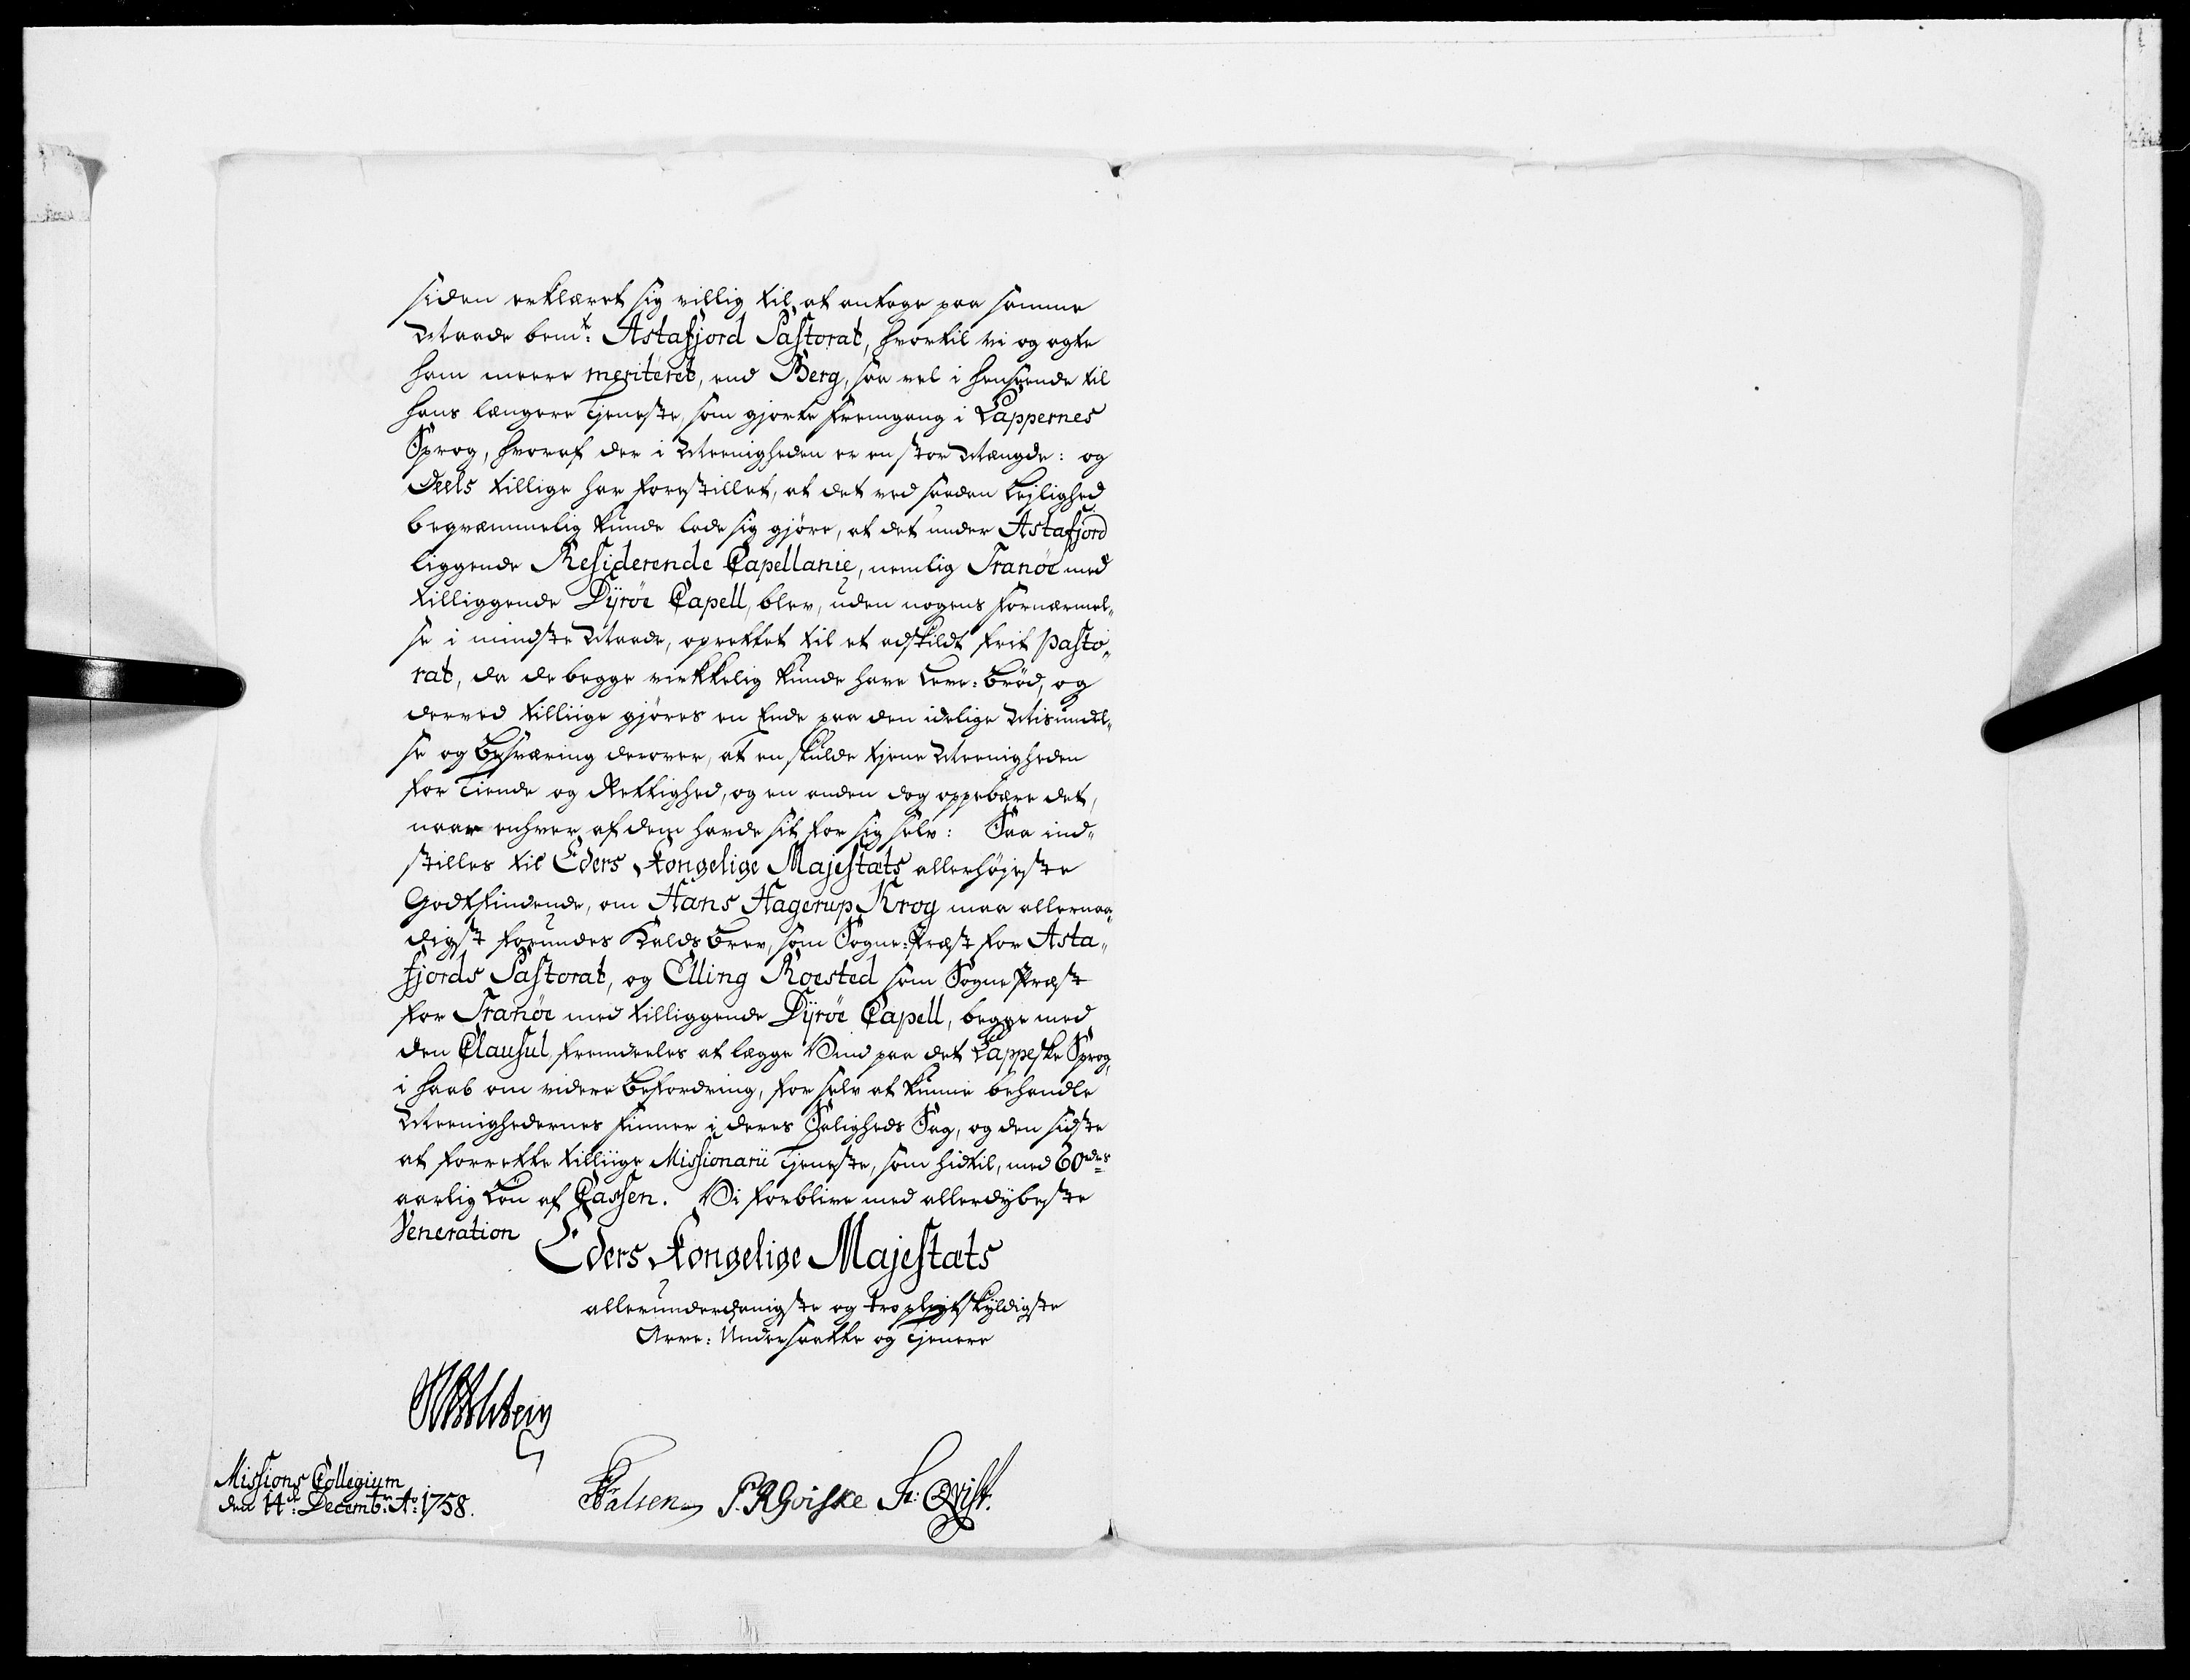 siden erklæret sig villig til at antage paa samme
Maade bemte: Astafjord Pastorat, hvortil vi og agte
ham meere meriteret, end Berg, saa vel i henseende til
hans længere Tjeneste, som gjorte Fremgang i Lappernes
Sprog, hvoraf der i Meenigheden er en stor Mængde: og
Deels tillige har forestillet, at det ved saadan Lejlighed
beqvæmmelig kunde lade sig gjøre, at det under Astafjord
liggende Residerende Capellanie, nemlig Tranöe med
tilliggende Dÿröe Capell, blev, uden nogens Fornærmel„
se i mindste Maade, oprettet til et adskildt frit Pasto„
rat, da de begge virkkelig kunde have Leve-Brød, og
derved tilliige gjøres en Ende paa den idelige Misundel„
se og Besværing derover, at en skulde tjene Meenigheden
for Tiende og Rettighed, og en anden dog oppebære det,
naar enhver af dem havde sit for sig selv: Saa ind„
stilles til Eders Kongelige Majestæts allerhøjeste
Godtfindende, om Hans Hagerup Krog maa allernaa„
digst forundes Kalds Brev, som Sogne-Præst for Asta„
fjords Pastorat, og Elling Roested som Sogne Præst
for Tranöe med tilliggende Dÿröe Capell, begge med
den Clausul, fremdeeles at lægge Vind paa det Lappeske Sprog,
i Haab om videre Befordring, for selv at kunne behandle
Meenighedernes Finner i deres Saligheds Sag, og den sidste
at forrette tilliige Missionarii Tjeneste, som hidtil, med 60 rdr
aarlig Løn af Cassen. Vi forblive med allerdybeste
Veneration
Eders Kongelige Majestæts
allerunderdanigste og tropligtskyldigste
Arve-Undersaatte og Tjenere
Holstein
Missions Collegium
den 14de Decembr: Ao: 1758.
Falsen P. R. Gviske Fr: Qvist.